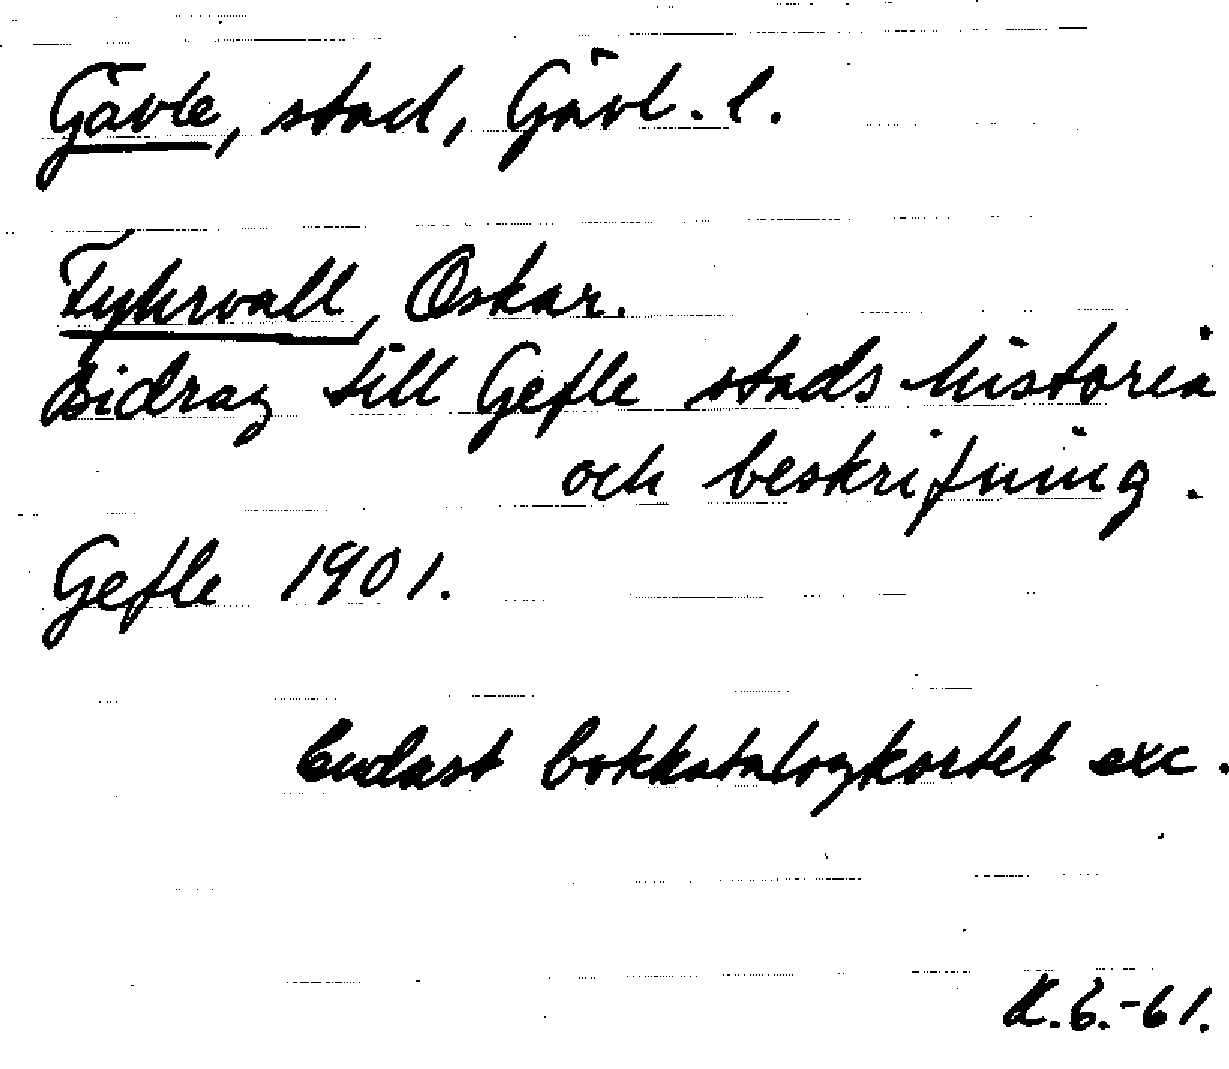 Gävle, stad, Gävl. l.
Fyhrvall, Oskar.
Bidrag till Gefle stads historia
och beskrifning.
Gefle 1901.
Endast bokkatalogkortet exc.
K.6.-61.